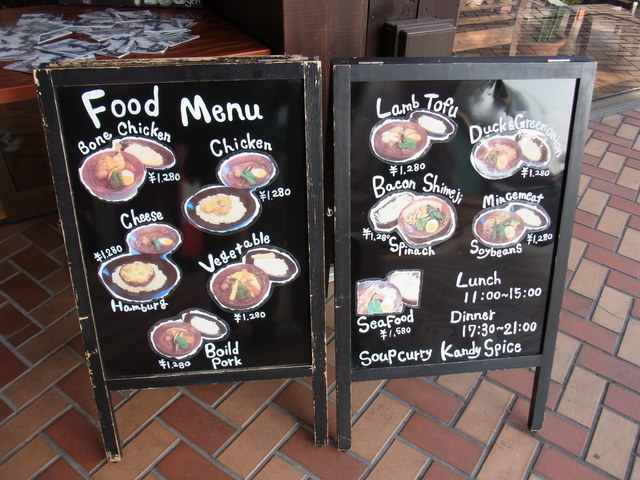 Food Menu
Bone Chicken
¥1,280
Chicken
¥1,280
Cheese
¥1,280
Hamburg
Vegetable
¥1,280
¥1,280
Boild
Pork
Lamb Tofu
¥1,280
Duck&Greenonion
¥1,280
Bacon Shimeji
¥1,280
Spinach
Mincemeat
Soybeans
¥1,280
Seafood
¥1,580
Lunch
11:00~15:00
Dinner
17:30~21:00
Soupcurry Kandy Spice